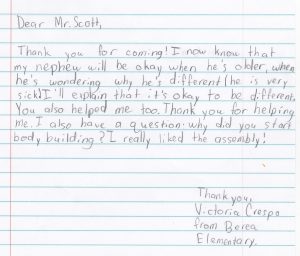 Dear Mr. Scott,
Thank you for coming! I now know that
my nephew will be okay when he's older, when
he's wondering why he's different (he is very
sick) I'll explain that it's okay to be different.
You also helped me too. Thank you for helping
me. I also have a question. why did you start
body building? I really liked the assembly!
Thank you,
Victoria Crespo
from Berea
Elementary.